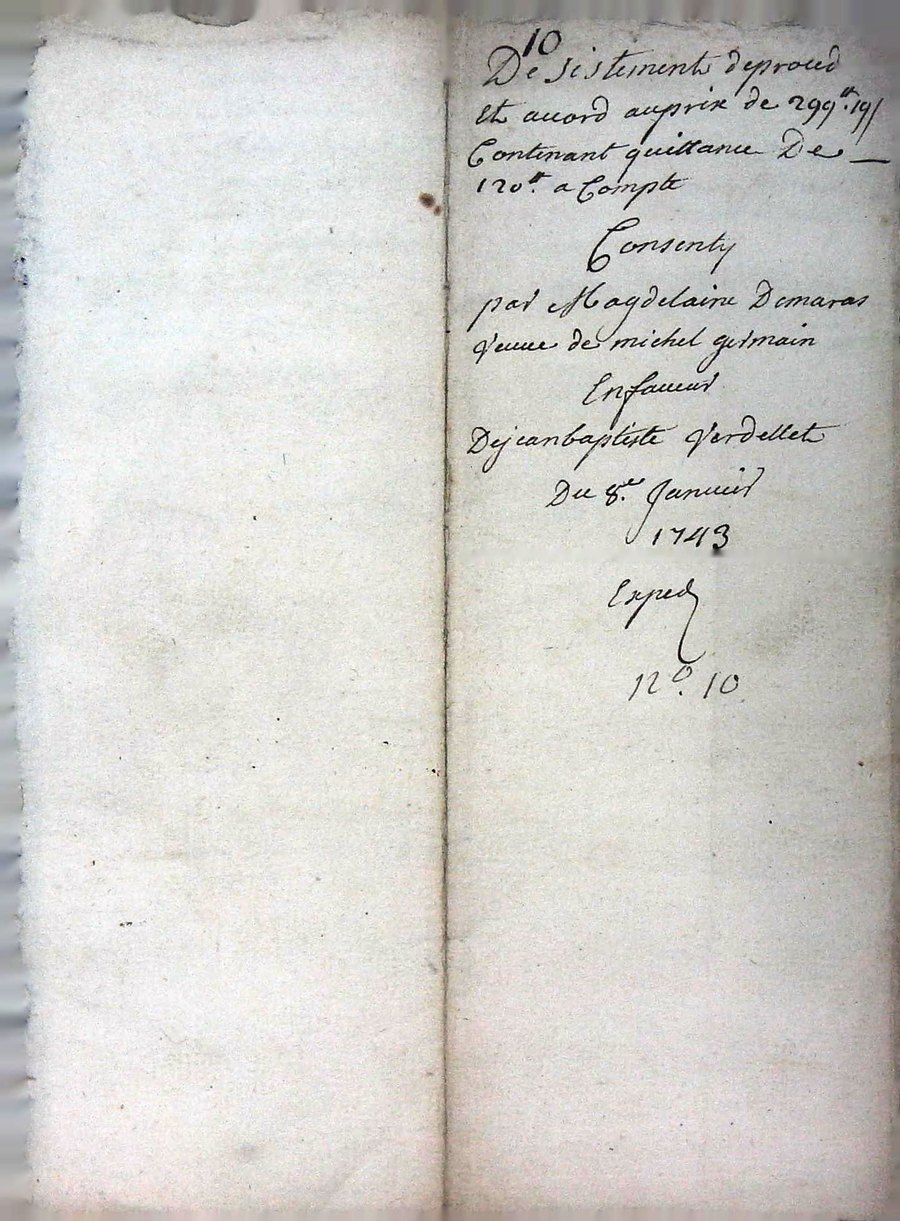 10
De sistement deproced
Et accord auprix de 299ᵗᵗ 19ſ
Contenant quittance De —
120ᵗᵗ a Compte
Consenty
par Magdelaine Demaras
Veuve de michel germain
Enfaveur
Dejeanbaptiste Verdellet
Du 8.e Janvier
1743
Exped
n.º 10